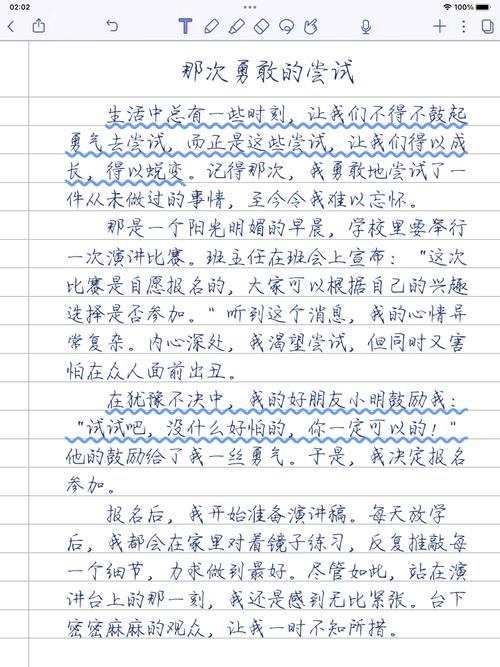 02:02
100%
那次勇敢的尝试
生活中总有一些时刻，让我们不得不鼓起
勇气去尝试，而正是这些尝试，让我们得以成
长，得以蜕变。记得那次，我勇敢地尝试了一
件从未做过的事情，至今令我难以忘怀。
那是一个阳光明媚的早晨，学校里要举行
一次演讲比赛。班主任在班会上宣布：“这次
比赛是自愿报名的，大家可以根据自己的兴趣
选择是否参加。”听到这个消息，我的心情异
常复杂。内心深处，我渴望尝试，但同时又害
怕在众人面前出丑。
在犹豫不决中，我的好朋友小明鼓励我：
“试试吧，没什么好怕的，你一定可以的！”
他的鼓励给了我一丝勇气。于是，我决定报名
参加。
报名后，我开始准备演讲稿。每天放学
后，我都会在家里对着镜子练习，反复推敲每
一个细节，力求做到最好。尽管如此，站在演
讲台上的那一刻，我还是感到无比紧张。台下
密密麻麻的观众，让我一时不知所措。